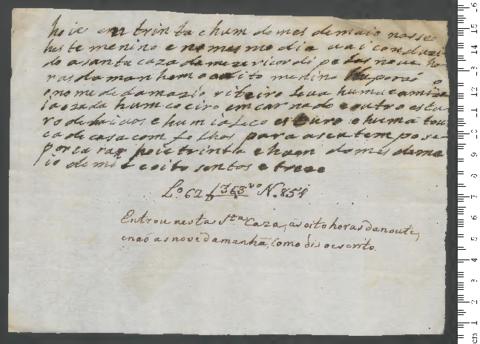 hoie em trinta e hum do mes de maio nasseo
este menino e no mesmo dia vai comduzi
do a santa caza da mezericordi pelas nove ho
ras da manhem o coal dito menino
o nome de damazio ribeiro leva huma camiza
uzada hum coeiro emcarnado e outro escu
ro de baicos e hum escuro e huma tou
ca de casa com folhos para a se a tempo se
porcurar hoie trinta e hum do mes de ma
io de mil e oito sentos e treze
Lº 62 f 353 vº Nº 851
Entrou nesta Sta Caza, as oito horas da noute,
e naõ as nove da manhã, como dis o escrito.